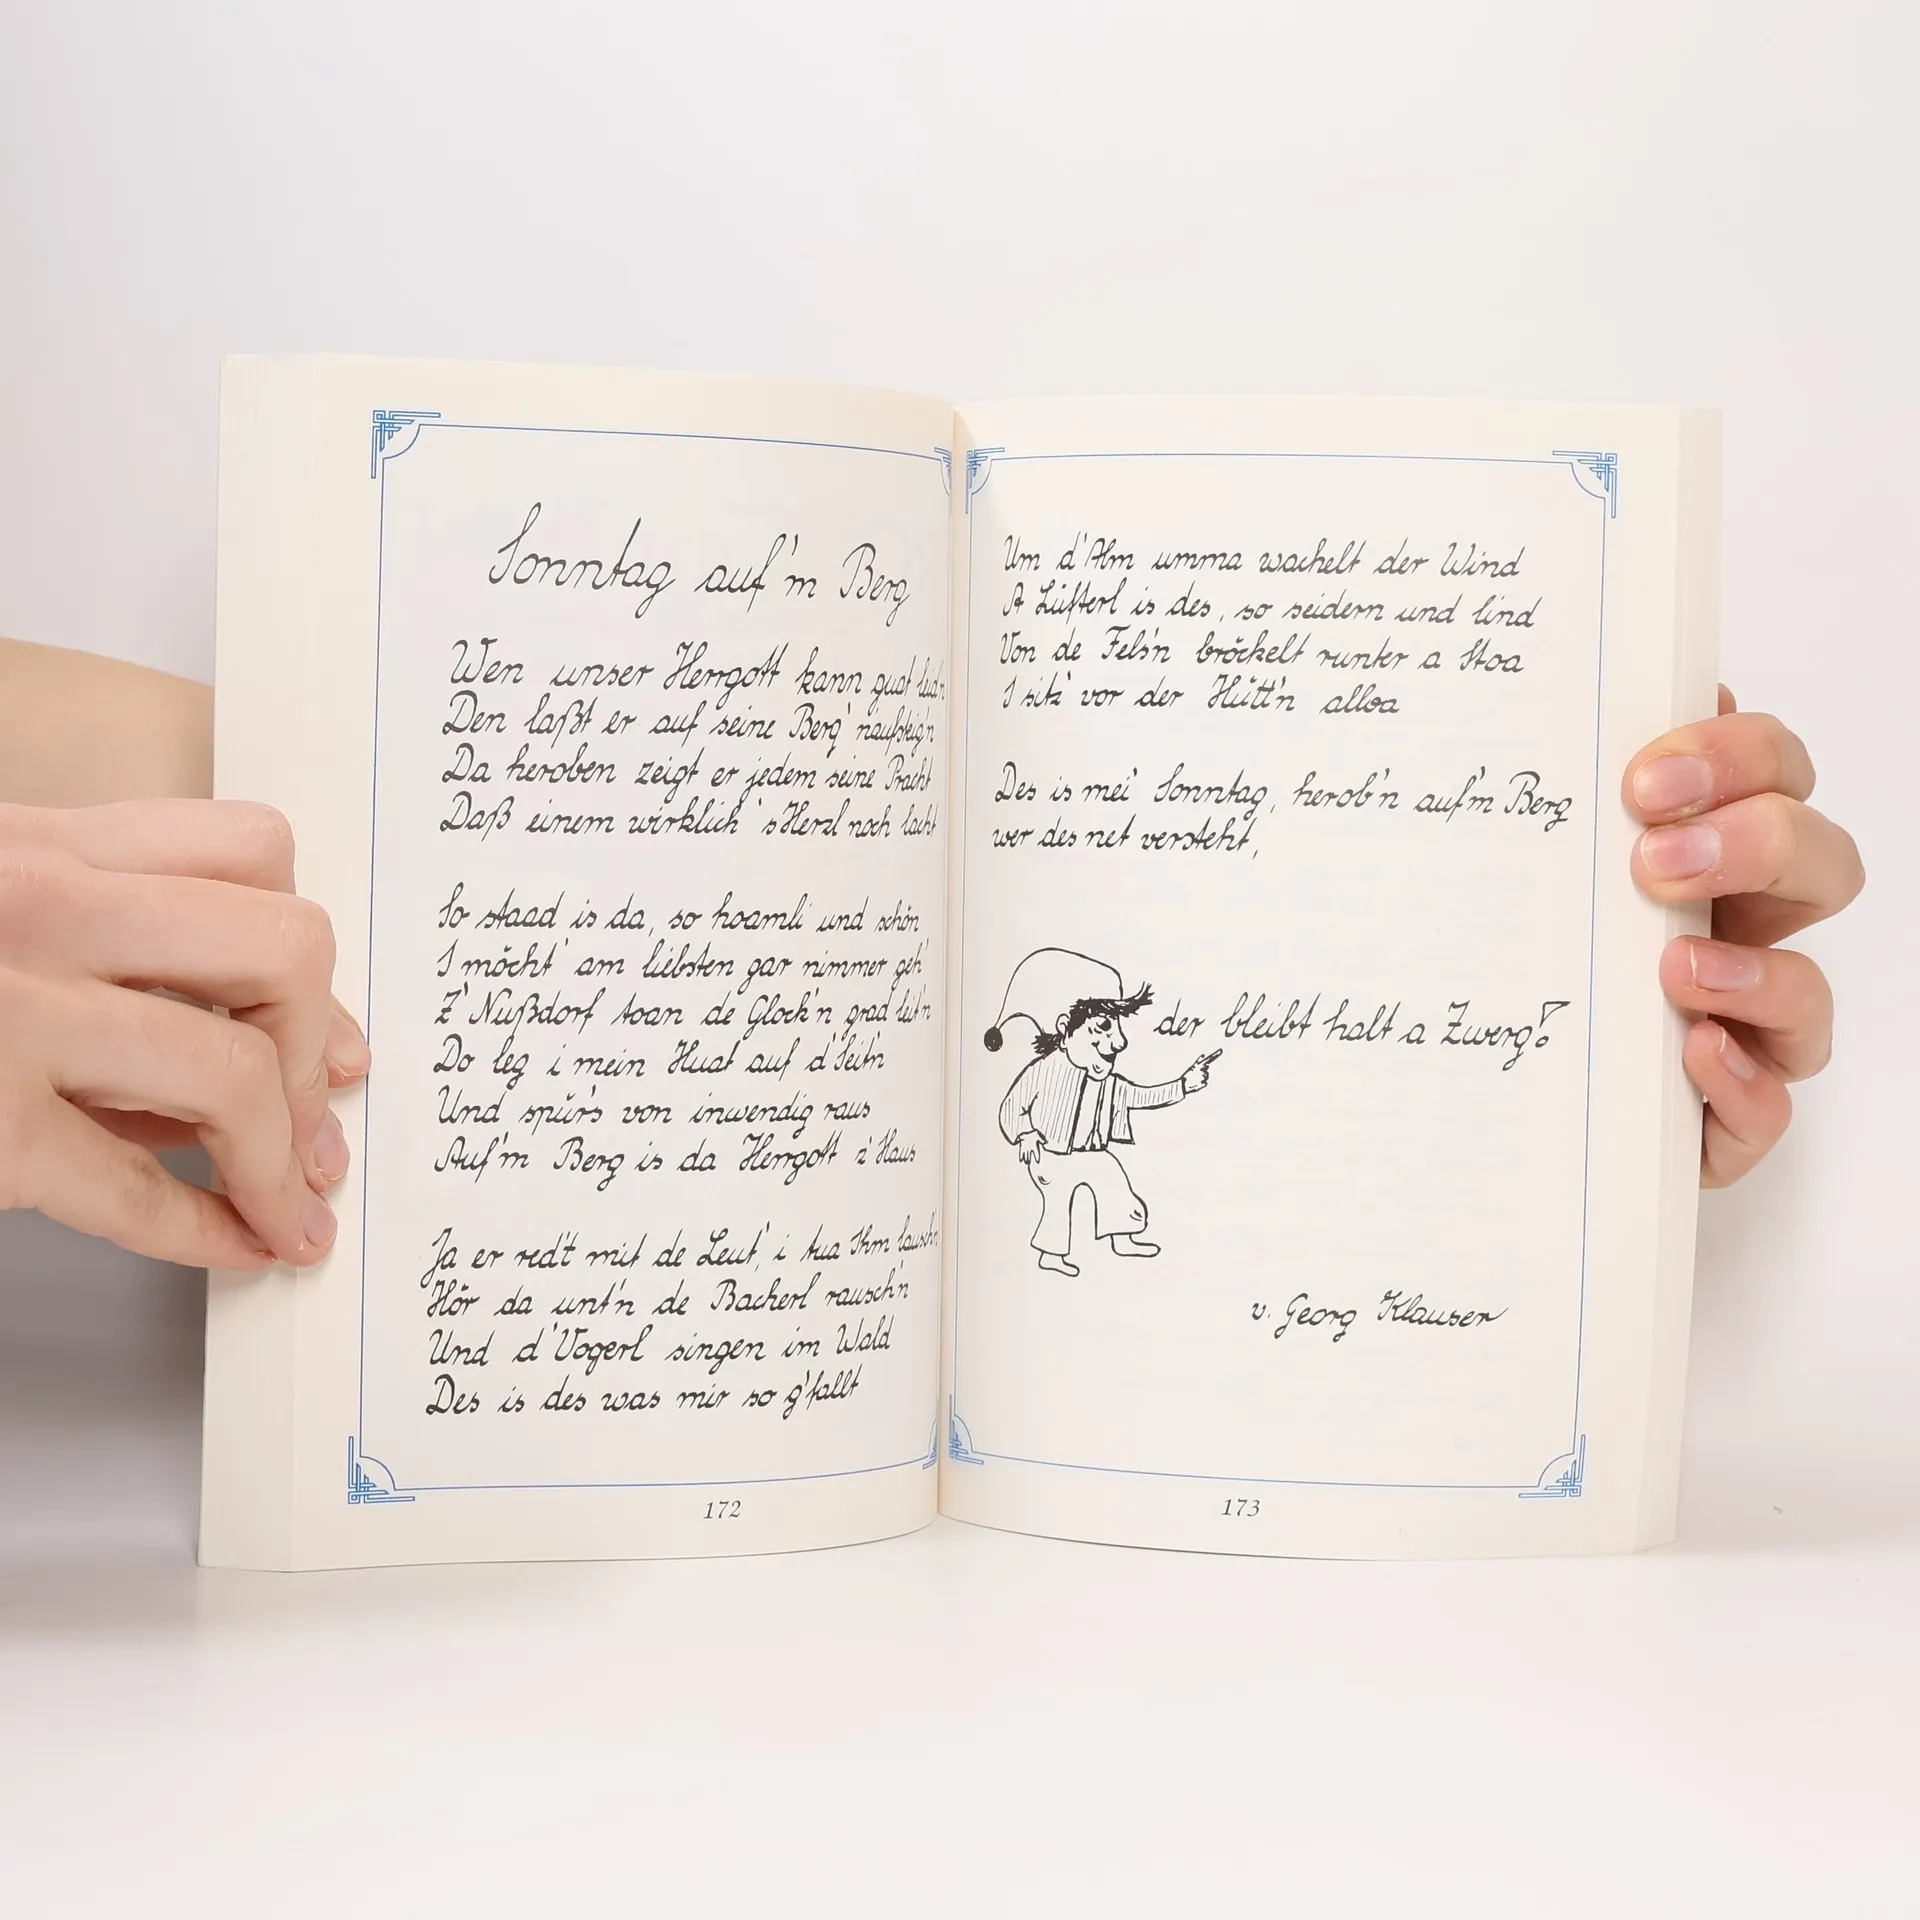 Sonntag auf'm Berg
Wen unser Herrgott kann guat leid'n
Den laßt er auf seine Berg' naufsteig'n
Da heroben zeigt er jedem seine Pracht
Daß einem wirklich 's Herzl noch lacht
So staad is da, so hoamli und schön
I möcht' am liebsten gar nimmer geh'
Z' Nußdorf toan de Glock'n grad leit'n
Do leg i mein Huat auf d'Seit'n
Und spür's von inwendig raus
Auf'm Berg is da Herrgott z' Haus
Ja er red't mit de Leut', i tua Ihm lausch'n
Hör da unt'n de Bacherl rausch'n
Und d'Vogerl singen im Wald
Des is des was mir so g'fallt
172
Um d'Alm umma wachelt der Wind
A Lüfterl is des, so seidern und lind
Von de Fels'n bröckelt runter a Stoa
I sitz' vor der Hütt'n alloa
Des is mei' Sonntag, herob'n auf'm Berg
wer des net versteht,
der bleibt halt a Zwerg!
v. Georg Klauser
173